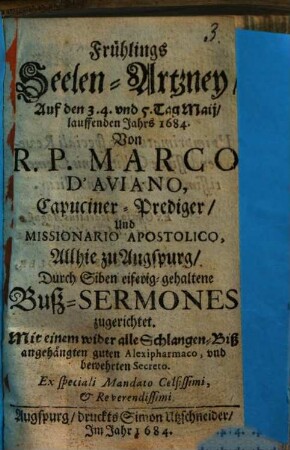 3.
Frühlings
Seelen-Artzney/
Auf den 3. 4. vnd 5. Tag Maij/
lauffenden Jahrs 1684.
Von
R. P. MARCO
D'AVIANO,
Capuciner-Prediger/
Und
MISSIONARIO APOSTOLICO,
Allhie zu Augspurg/
Durch Siben eiferig-gehaltene
Buß-SERMONES
zugerichtet.
Mit einem wider alle Schlangen-Biß
angehängten guten Alexipharmaco, vnd
bewehrten Secreto.
Ex speciali Mandato Celsissimi,
& Reverendissimi.
Augspurg/ druckts Simon Utzschneider/
Im Jahr 1684.